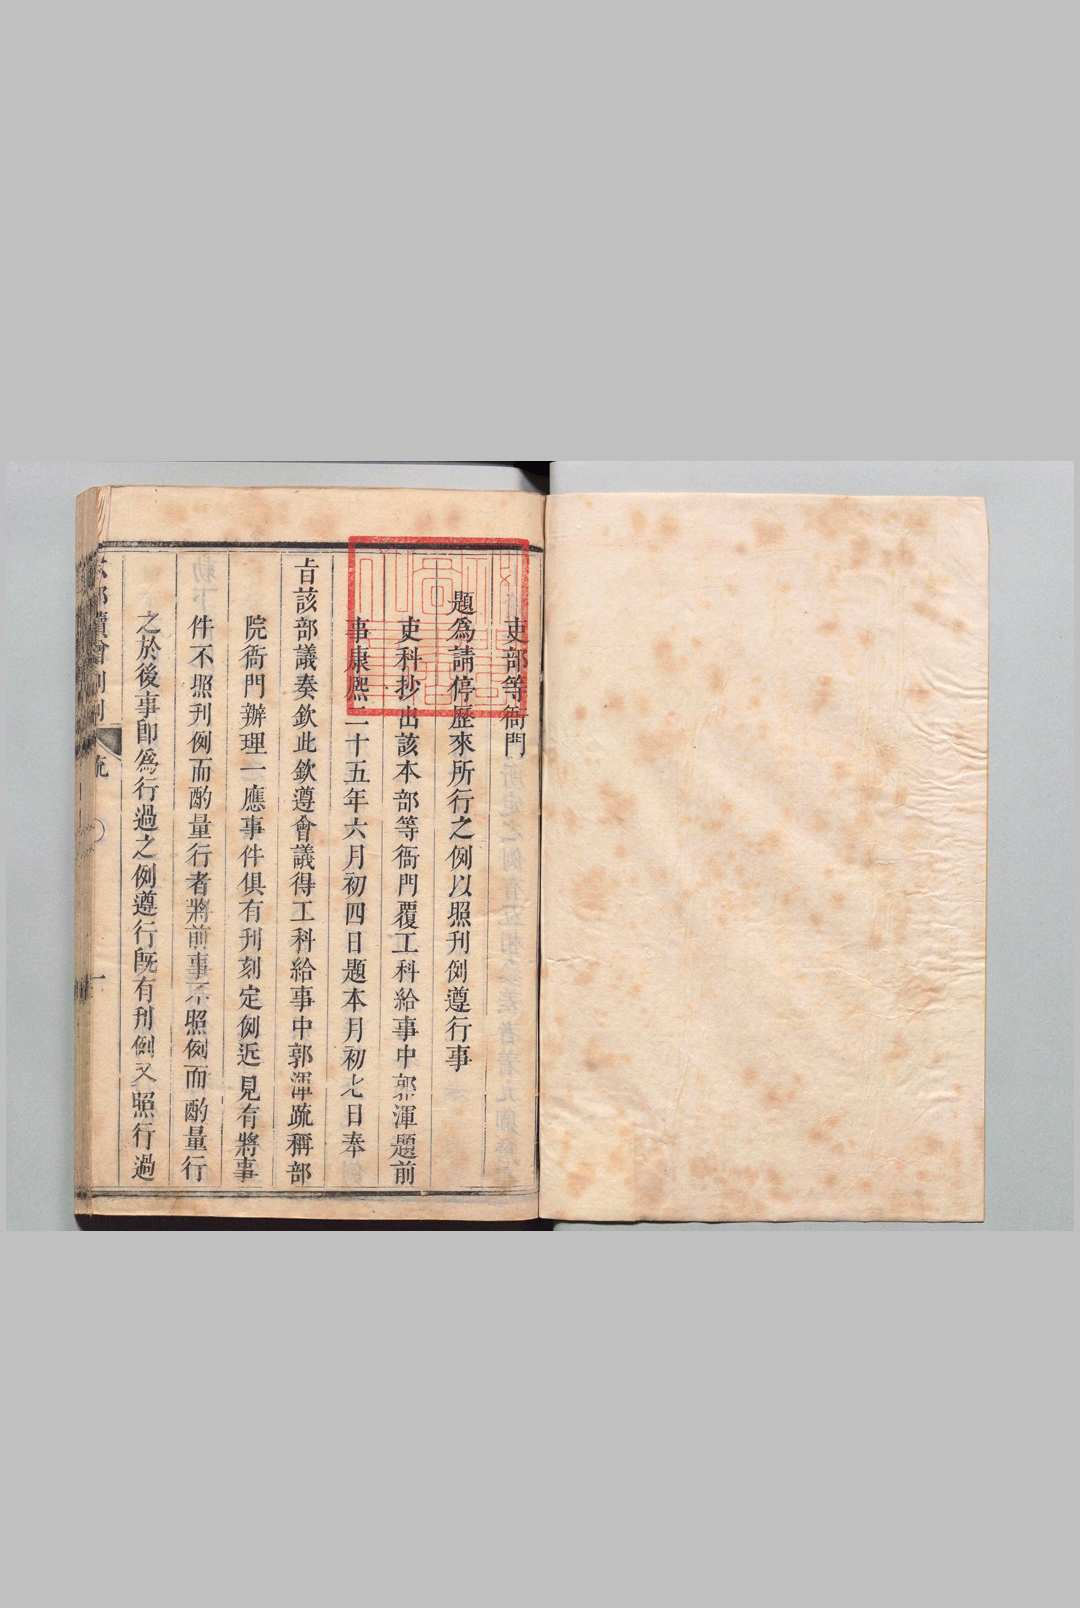 吏部等衙門
題為請停歷來所行之例以照刊例遵行事
吏科抄出該本部等衙門覆工科給事中郭渾題前
事康熙二十五年六月初四日題本月初七日奉
旨該部議奏欽此欽遵會議得工科給事中郭渾疏稱部
院衙門辦理一應事件俱有刊刻定例近見有將事
件不照刊例而酌量行者將前事不照例而酌量行
之於後事即為行過之例遵行既有刊例又照行過
六部續增則例
疏
一